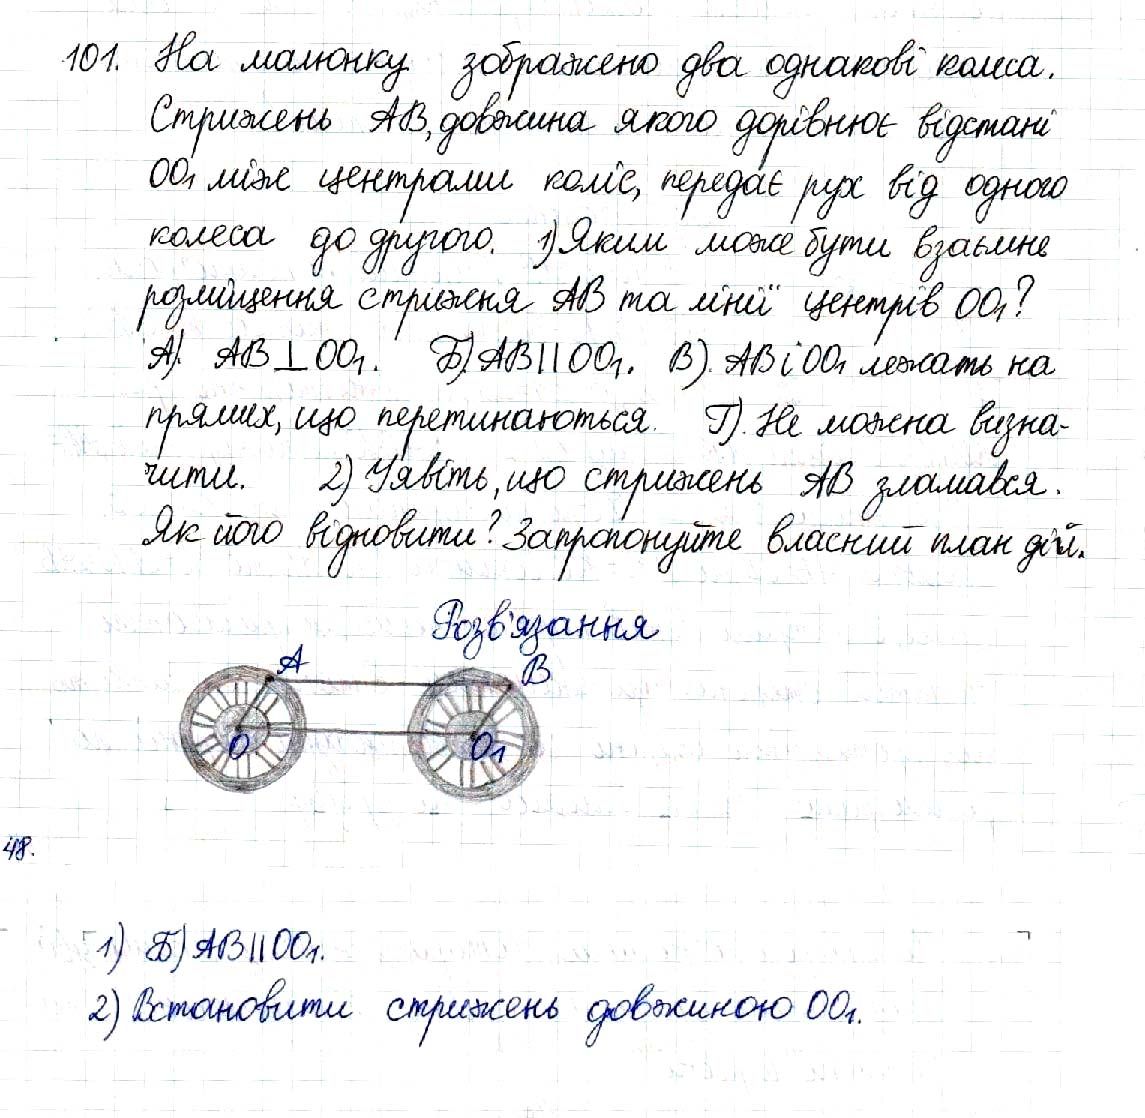 101. На малюнку зображено два однакові колеса.
Стрижень АВ, довжина якого дорівнює відстані
ОО₁ між центрами коліс, передає рух від одного
колеса до другого. 1) Яким може бути взаємне
розміщення стрижня АВ та лінії центрів ОО₁?
А). АВ⊥ОО₁. Б). АВ||ОО₁. В). АВ і ОО₁ лежать на
прямих, що перетинаються. Г). Не можна визна-
чити. 2) Уявіть, що стрижень АВ зламався.
Як його відновити? Запропонуйте власний план дій.
Розв'язання
А В
О О₁
48.
1) Б) АВ||ОО₁.
2) Встановити стрижень довжиною ОО₁.